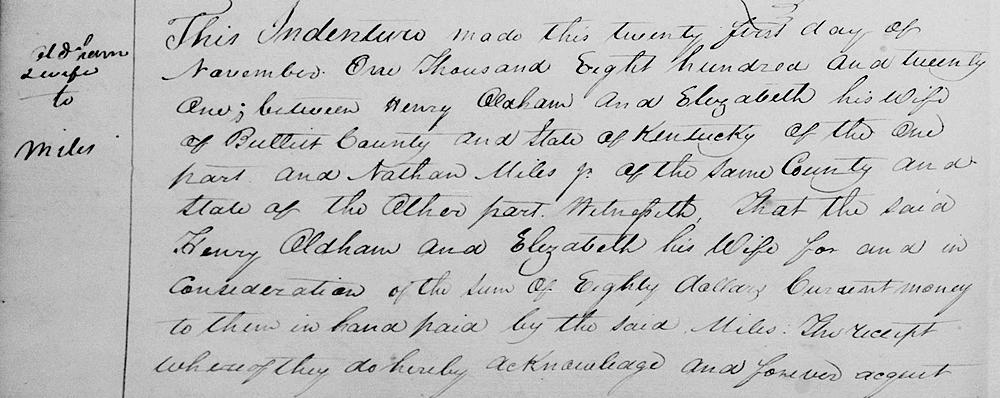 Oldham
& wife
to
Miles
This Indenture made this twenty first day of
November One Thousand Eight hundred and twenty
One; between Henry Oldham and Elizabeth his Wife
of Bullitt County and State of Kentucky of the One
part and Nathan Miles Jr. of the same County and
State of the Other part. Witnesseth, That the said
Henry Oldham and Elizabeth his Wife for and in
Consideration of the sum Of Eighty dollars Current money
to them in hand paid by the said Miles: The receipt
whereof they do hereby acknowledge and forever acquit